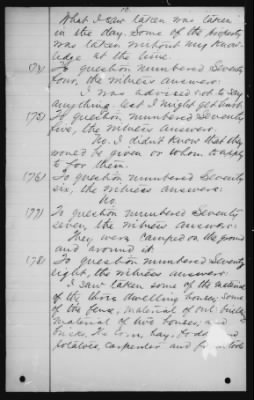 What I saw taken was taken
in the day. Some of the property
was taken without my know-
ledge at the time.
74) To question numbered Seventy
four, the witness answers:
I was advised not to say
anything lest I might get hurt.
75) To question numbered Seventy
five, the witness answers.
No. I didn't know that they
would be given or whom to apply
to for them.
76) To question numbered Seventy
six, the witness answers:
No.
77) To question numbered Seventy
seven, the witness answers:
They were camped on the ground
and around it.
78) To question numbered Seventy
eight, the witness answers:
I saw taken some of the material
of the three dwelling houses, some
of the fence, material of out buildings
material of two houses, and
bricks, the corn, hay, fodder and
potatoes, carpenter and tools